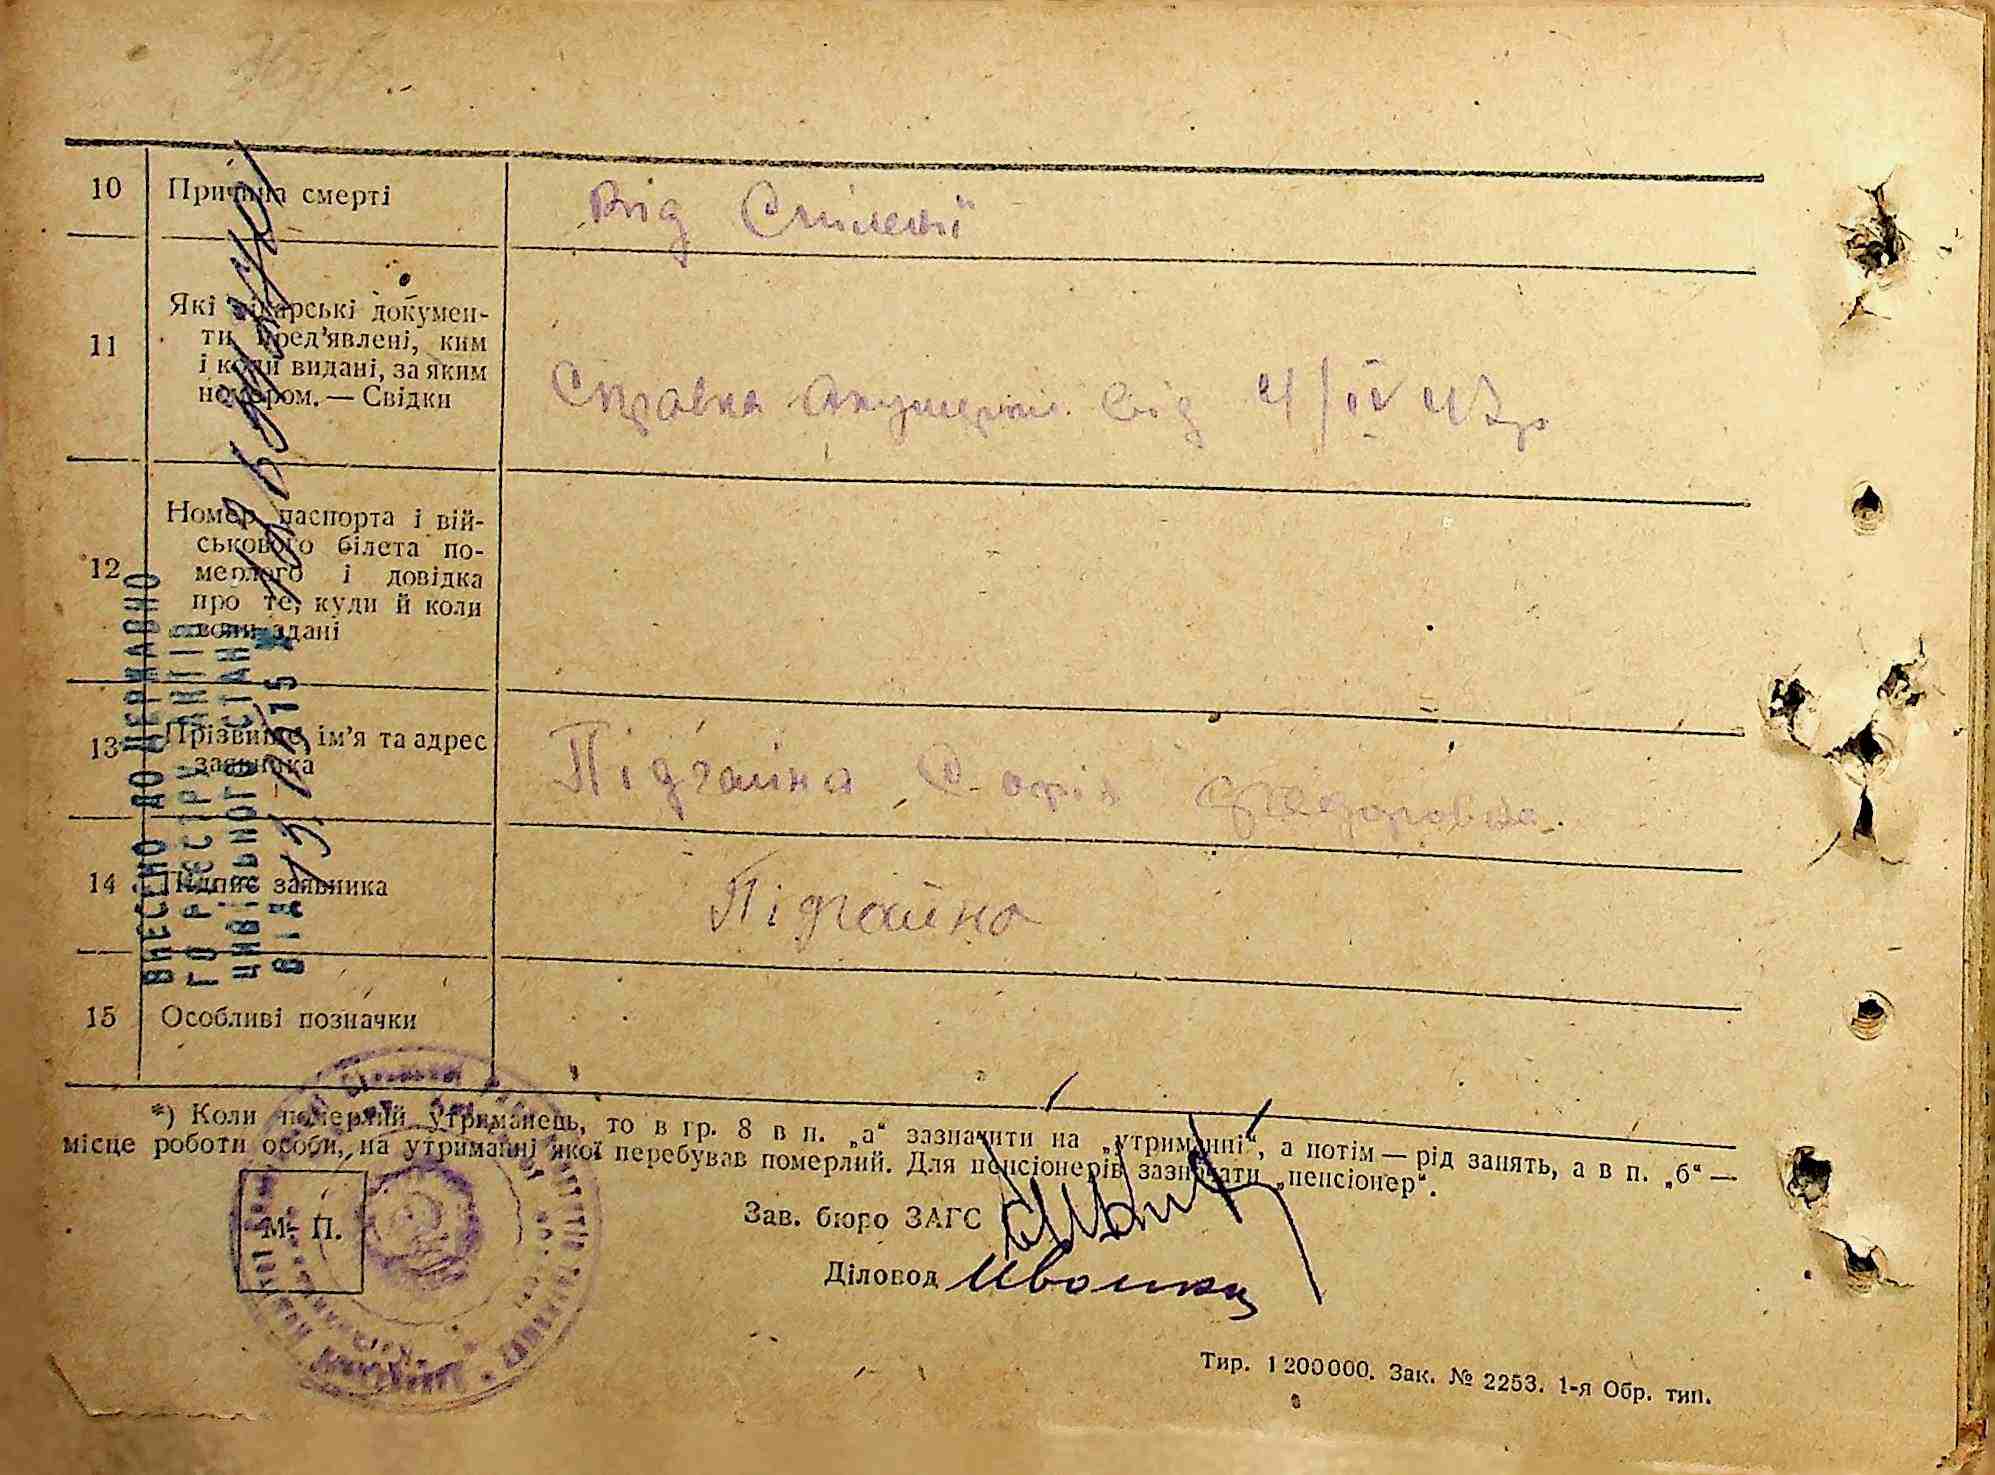 10 Причина смерті
Від
11 Які лікарські докумен-
ти пред'явлені, ким
і коли видані, за яким
номером. — Свідки
Справка від 4/IV 47р
12 Номер паспорта і вій-
ськового білета по-
мерлого і довідка
про те, куди й коли
вони здані
13 Прізвище ім'я та адрес
заявника
Підгайна Софія Федоровна
14 Підпис заявника
Підгайна
15 Особливі позначки
ВНЕСЕНО ДО ДЕРЖАВНО
ГО РЕЄСТРУ АКТІВ
ЦИВІЛЬНОГО СТАНУ
ВІД
*) Коли померлий утриманець, то в гр. 8 в п. „а“ зазначити на „утриманні“, а потім — рід занять, а в п. „б“ —
місце роботи особи, на утриманні якої перебував померлий. Для пенсіонерів зазначати „пенсіонер“.
М. П.
Зав. бюро ЗАГС
Діловод
Тир. 1 200 000. Зак. № 2253. 1-я Обр. тип.